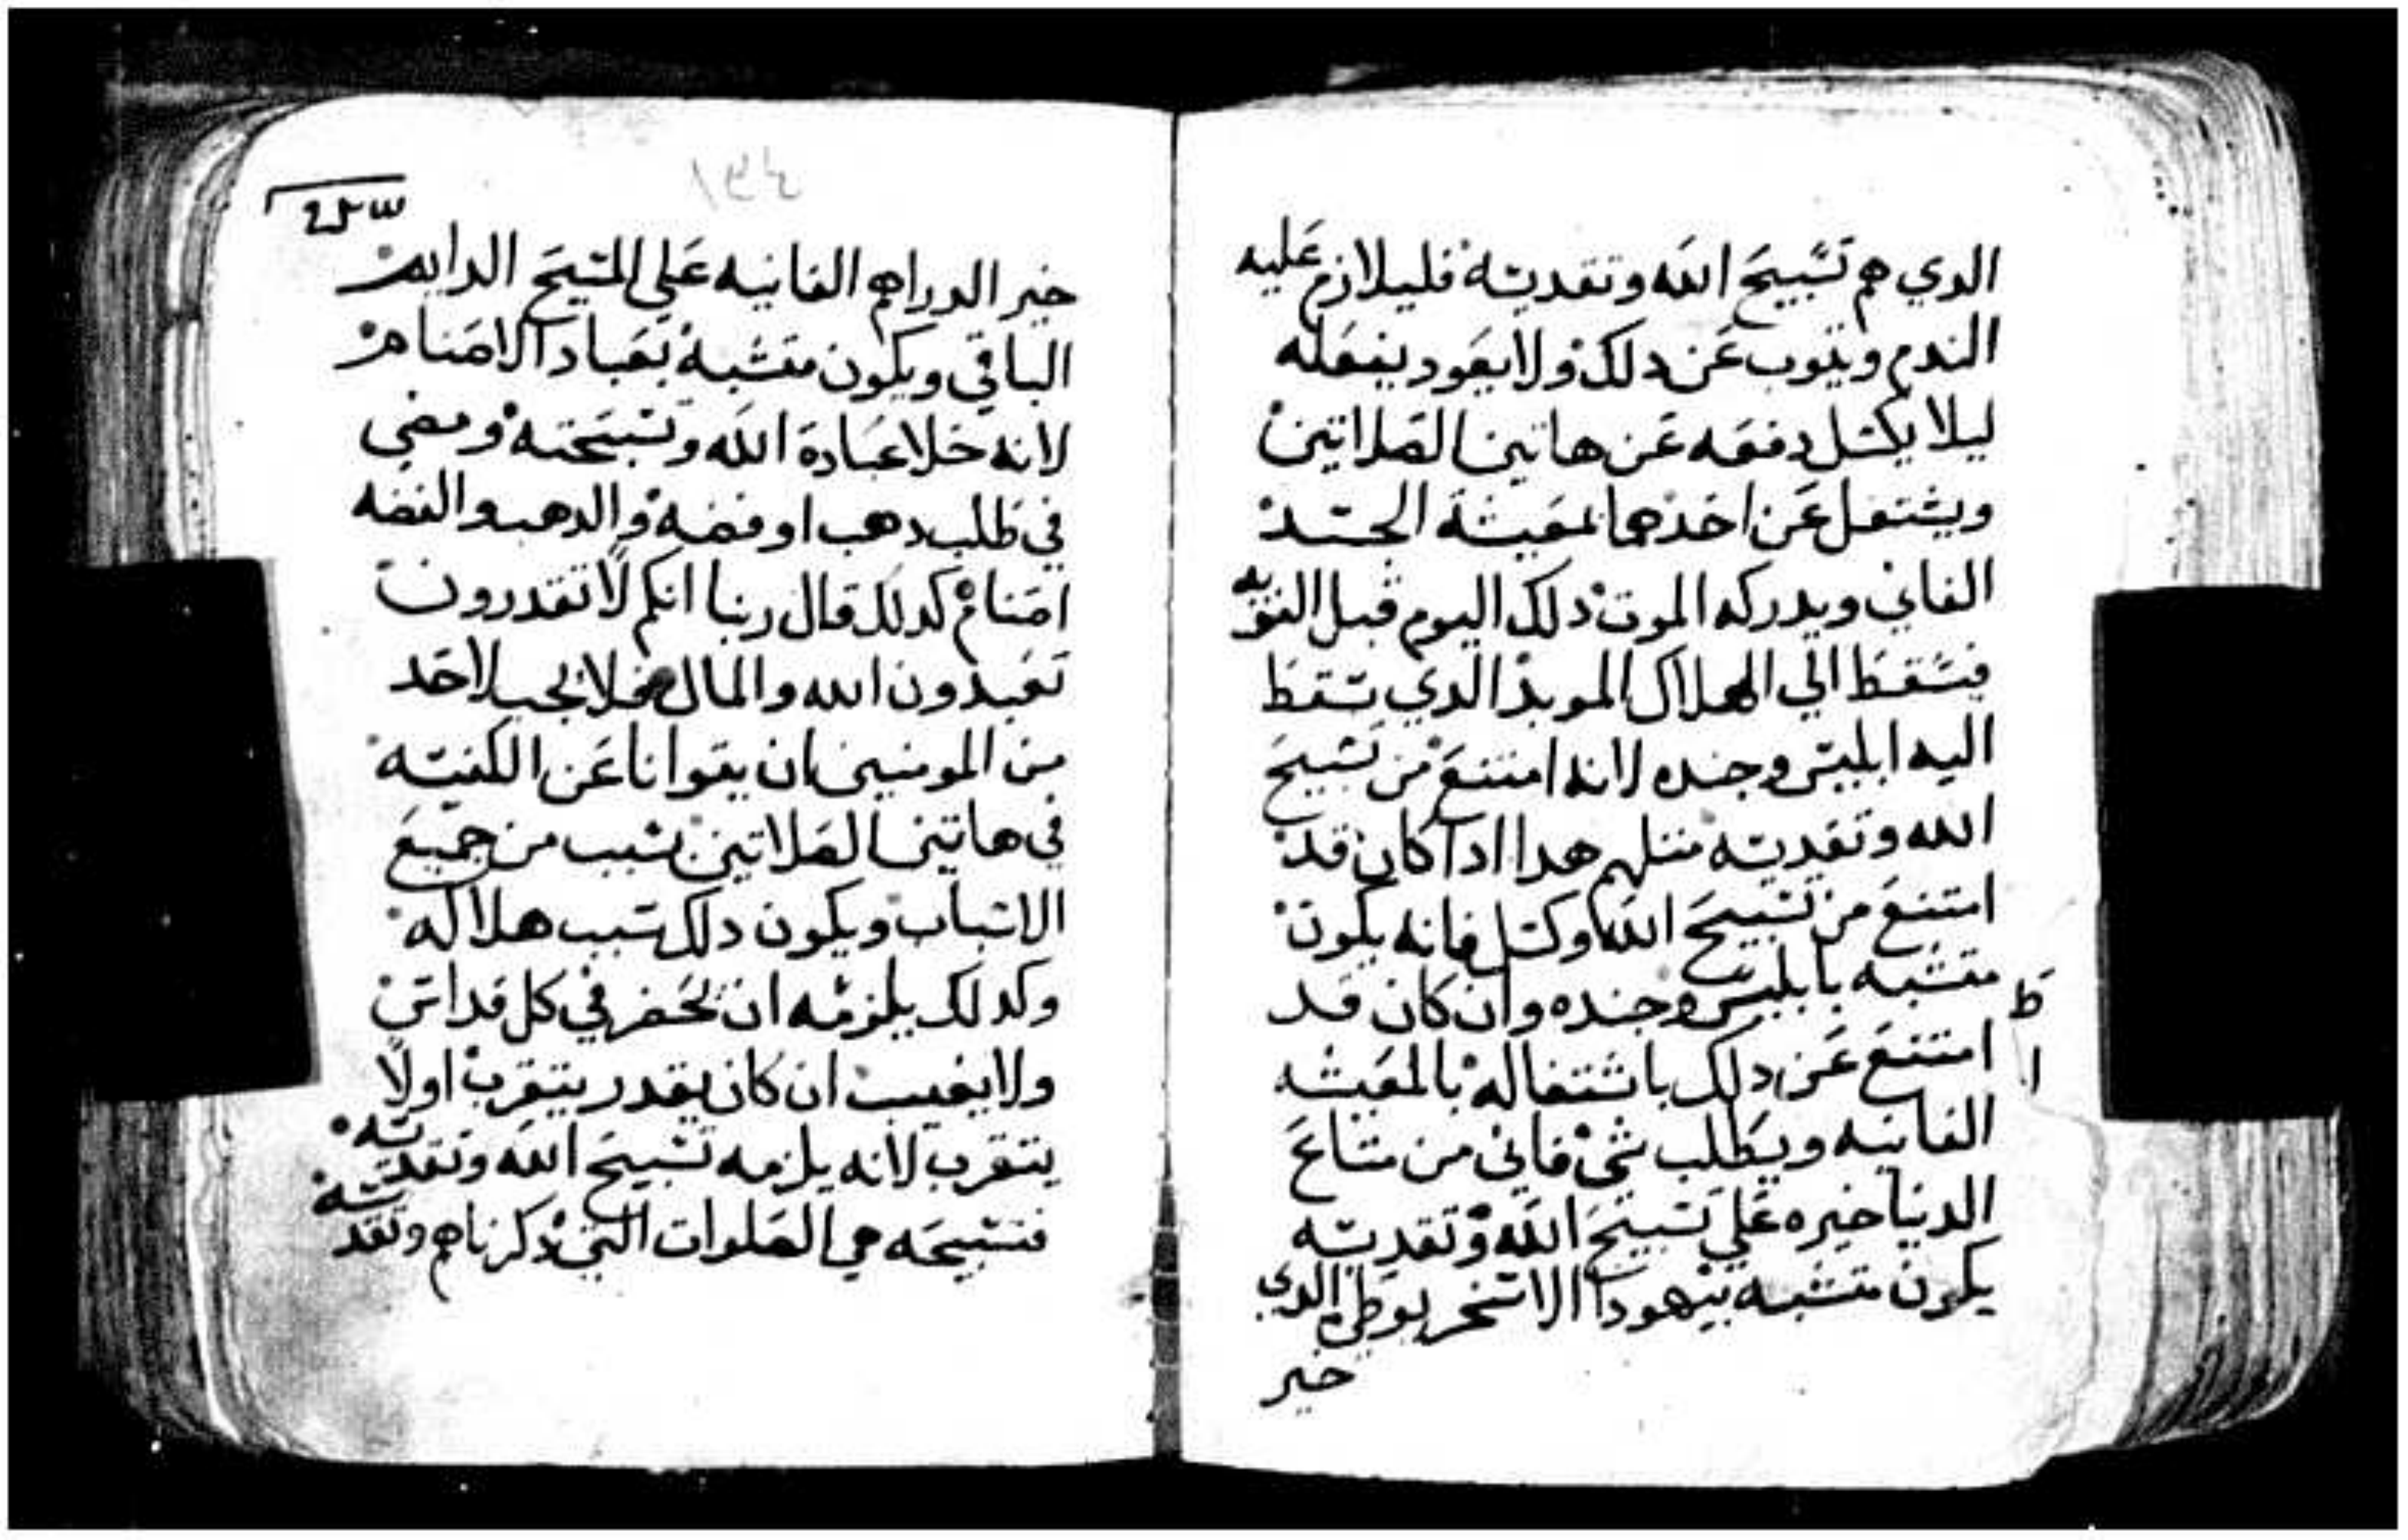 الدي هم تسبيح الله وتقديسه فليلازم عليه
الندم ويتوب عن دلك ولا يعود يفعله
ليلا يكسل دفعه عن هاتين الصلاتين
ويشتغل عن احدهما لمعيشة الجسد
الفاني ويدركه الموت دلك اليوم قبل التوبه
فيسقط الي الهلاك الموبد الدي سقط
اليه ابليس وجنده لانه امتنع من تسبيح
الله وتقديسه متلهم هدا ادا كان قد
امتنع من تسبيح الله وكسل فانه يكون
متشبه بابليس وجنده وان كان قد
امتنع عن دلك باشتغاله بالمعيشه
الفانيه ويطلب شي فاني من متاع
الدنيا خيره علي تسبيح الله وتقديسه
يكون متشبه بيهودا الاسخريوطي الدي
خير
ط
ا
خير الدراهم الفانيه علي المسيح الدايم
الباقي ويكون متشبه بعباد الاصنام
لانه خلا عبادة الله وتسبحته ومضي
في طلب دهب او فضه والدهب والفضه
اصنام كدلك قال ربنا انكم لا تقدرون
تعبدون الله والمال فلا يجب لاحد
من المومنين ان يتوانا عن الكنيسه
في هاتين الصلاتين بسبب من جميع
الاسباب ويكون دلك سبب هلاكه
وكدلك يلزمه ان يحضر في كل قداس
ولا يغيب ان كان يقدر يتقرب اولا
يتقرب لانه يلزمه تسبيح الله وتقديسه
فتسبيحه هي الصلوات التي دكرناهم وتقديسه